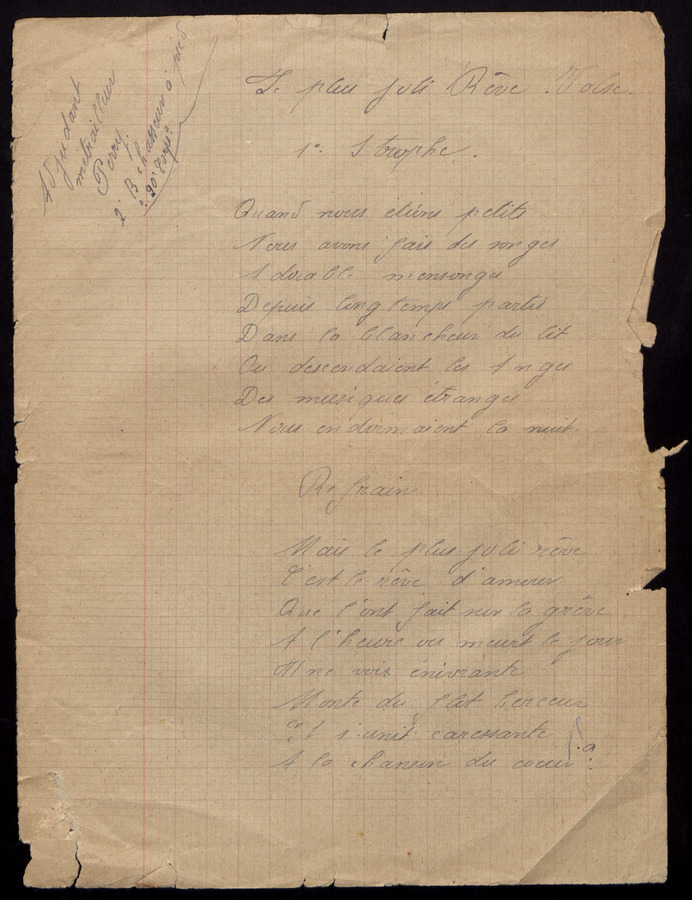 Adjudant
mitrailleur
Perry
2e B. Chasseur à pied
20e Corps
Le plus joli Rêve. Valse.
1e Strophe.
Quand nous étions petits
Nous avons fais des songes
Adorable mensonge
Depuis longtemps partis
Dans la blancheur du lit
Ou descendaient les Anges
Des musiques étranges
Nous endormaient la nuit
Refrain
Mais le plus joli rêve
C'est le rêve d'amour
Que l'ont fait sur la grève
A l'heure ou meurt le jour
Une voix énivrante
Monte du flot berceur
Et s'unit caressante
A la chanson du coeur